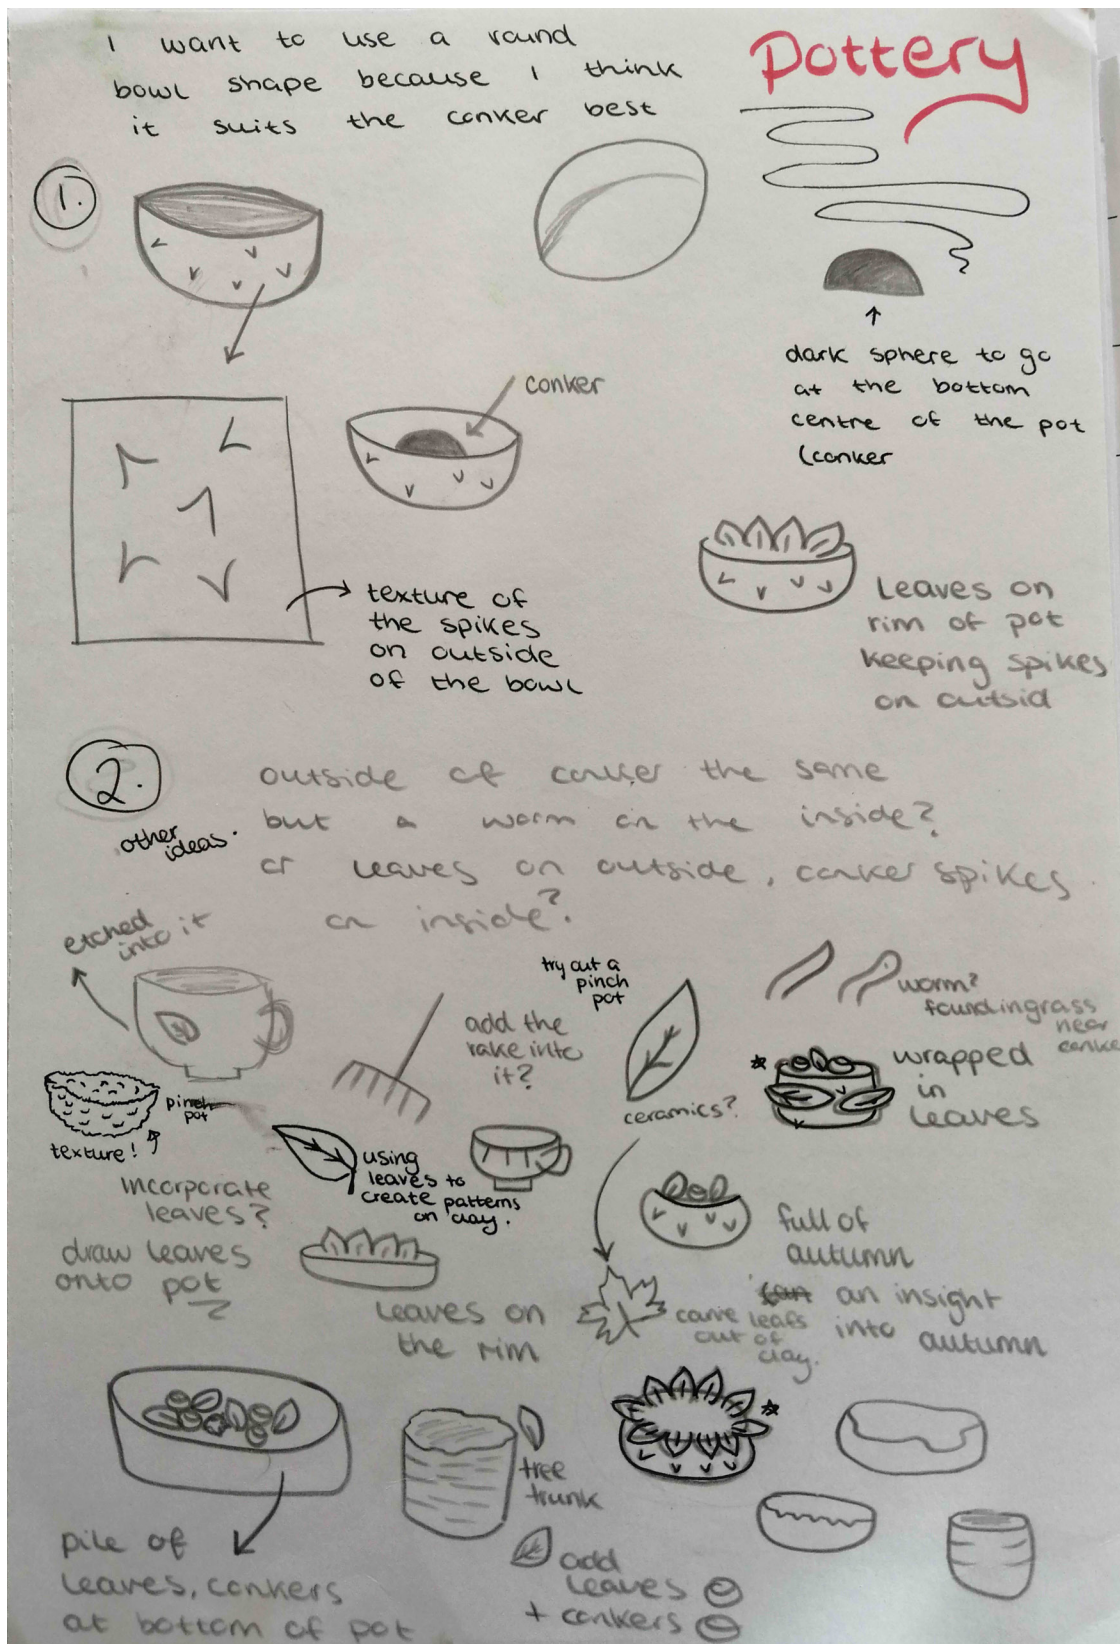 I want to use a round
bowl shape because I think
it suits the conker best
Pottery
1.
dark sphere to go
at the bottom
centre of the pot
(conker
conker
texture of
the spikes
on outside
of the bowl
Leaves on
rim of pot
keeping spikes
on outsid
2.
other
ideas.
outside of conker the same
but a worm on the inside?
or leaves on outside, conker spikes
on inside?
etched
into it
try out a
pinch
pot
worm?
found in grass
near
conke
add the
rake into
it?
wrapped
in
leaves
ceramics?
pinch
pot
texture!
using
leaves to
create patterns
on clay.
incorporate
leaves?
draw leaves
onto pot
full of
autumn
can an insight
into autumn
leaves on
the rim
carve leafs
out of
clay.
tree
trunk
pile of
leaves, conkers
at bottom of pot
add
leaves
+ conkers